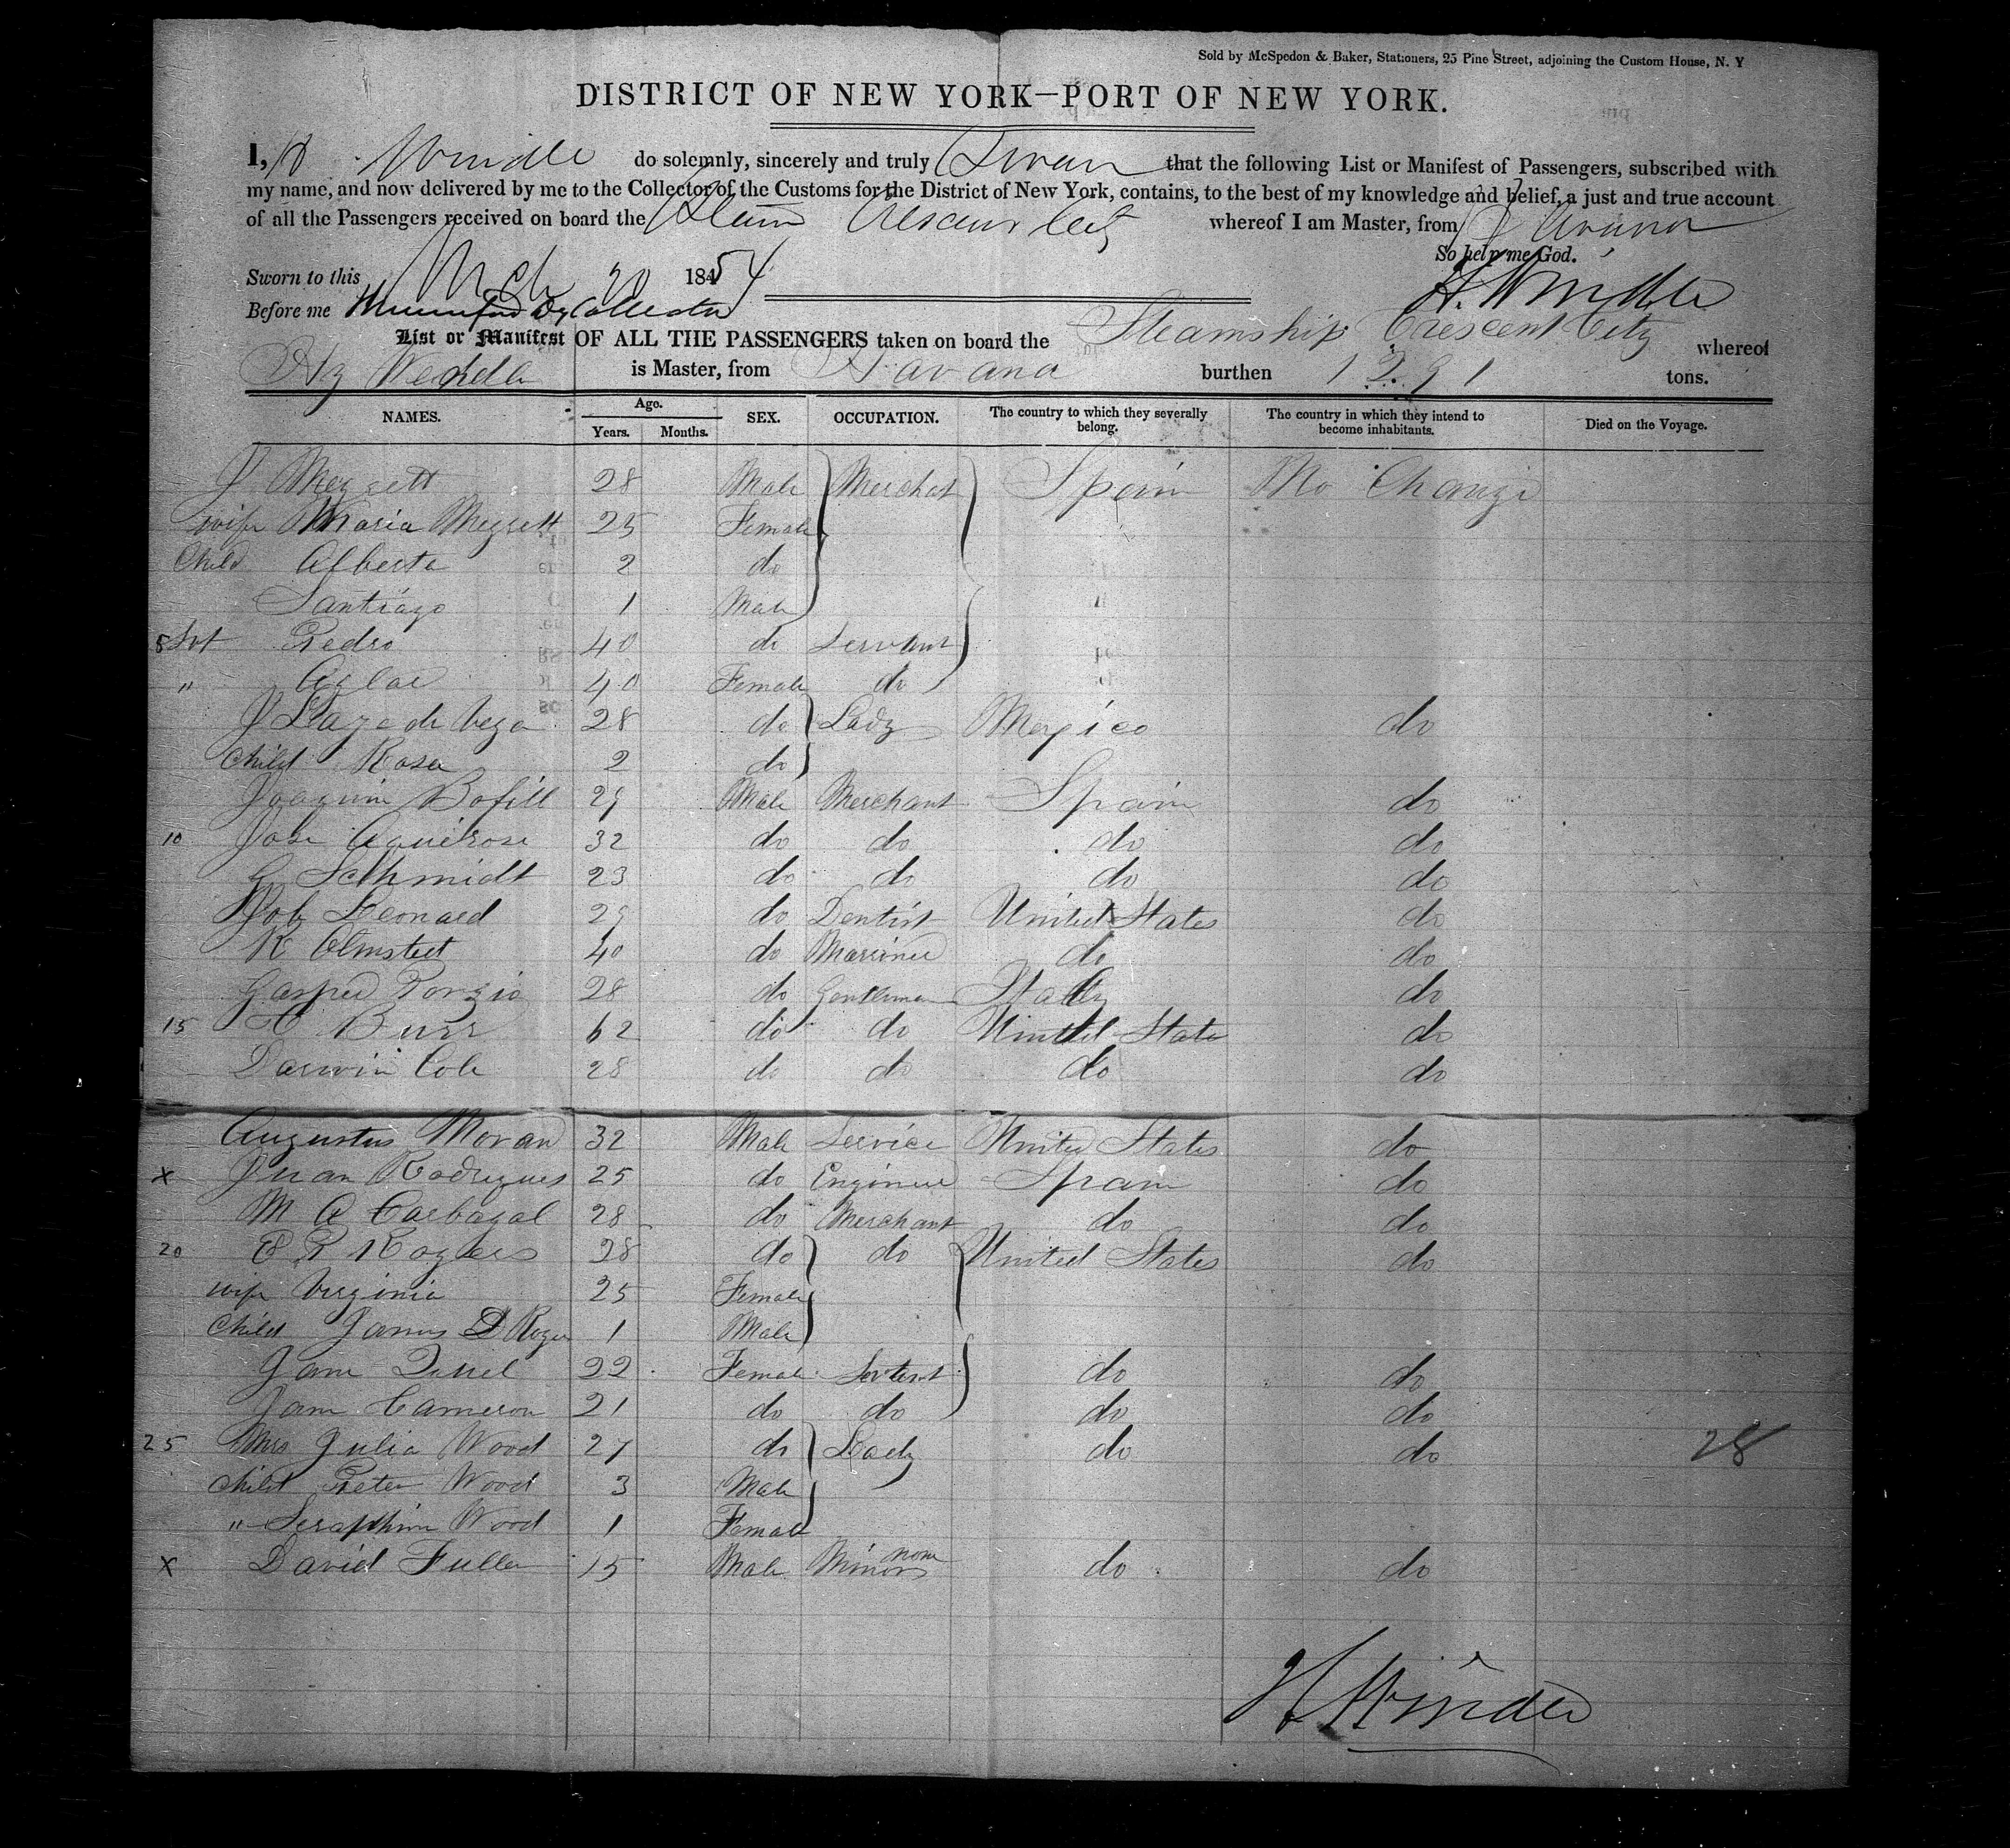 Sold by McSpedon & Baker, Stationers, 25 Pine Street, adjoining the Custom House, N. Y
DISTRICT OF NEW YORK—PORT OF NEW YORK.
I, H Windle do solemnly, sincerely and truly Swear that the following List or Manifest of Passengers, subscribed with
my name, and now delivered by me to the Collector of the Customs for the District of New York, contains, to the best of my knowledge and belief, a just and true account
of all the Passengers received on board the Steam Crescent City whereof I am Master, from Havana
So help me God.
Sworn to this Mch 20 1854 H. Windle
Before me Dy Collector
List or Manifest OF ALL THE PASSENGERS taken on board the Steamship Crescent City whereof
Hy Wendle is Master, from Havana burthen 1291 tons.
NAMES. Age. Years. Months. SEX. OCCUPATION. The country to which they severally belong. The country in which they intend to become inhabitants. Died on the Voyage.
J Mezsett 28 Male Merchat Spain No Change
wife Maria Mezsett 25 Female
Child Alberta 2 do
Santiago 1 Male
5 Svt Pedro 40 do Servant
" Aglae 40 Female do
J Laza de Vega 28 do Lady Mexico do
Child Rosa 2 do
Joaquim Bofill 29 Male Merchant Spain do
10 Jose 32 do do do do
G Schmidt 23 do do do do
Job Leonard 29 do Dentist United States do
R Olmsted 40 do Marriner do do
Gasper Porzio 28 do Gentleman Italy do
15 Burr 62 do do United State do
Darwin Cole 28 do do do do
Augustus Moran 32 Male Service United States do
x Juan Rodrigues 25 do Engineer Spain do
M A Carbagal 28 do Merchant do do
20 E P Rogers 28 do do United States do
wife Virginia 25 Female
Child James D Roger 1 Male
Jane 22 Female Servant do do
Jane Cameron 21 do do do do
25 Mrs Julia Wood 27 do Lady do do 28
Child Peter Wood 3 Male
" Seraphim Wood 1 Female
x David Fuller 15 Male Minors none do do
H Windle